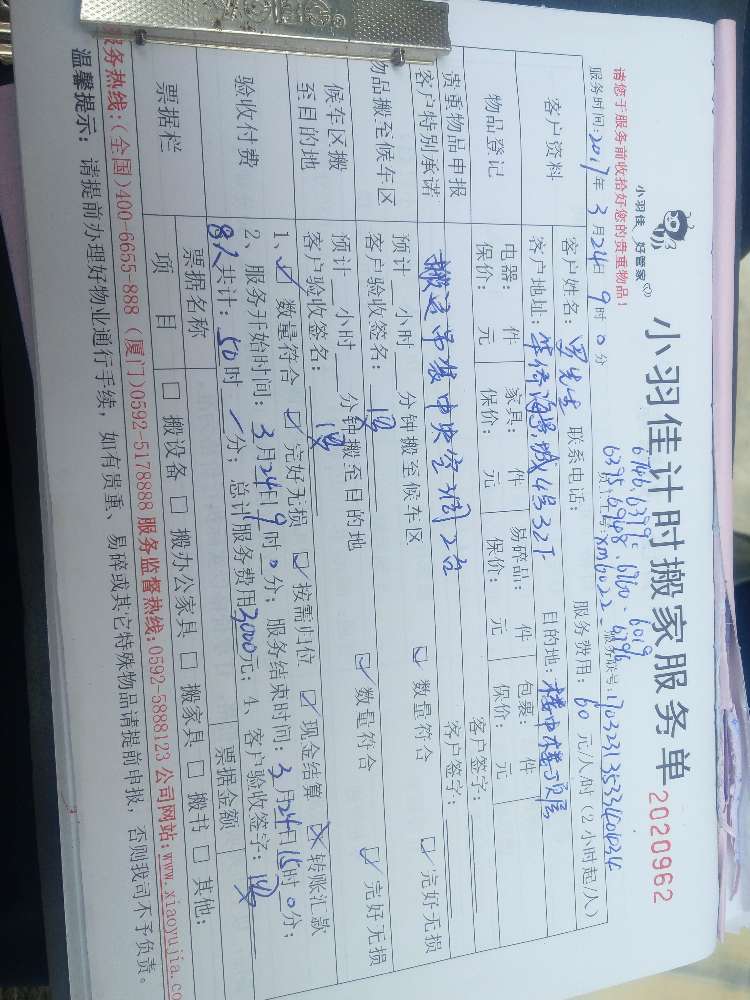 小羽佳 好管家
小羽佳计时搬家服务单
2020962
请您于服务前收拾好您的贵重物品!
服务时间:2017年 3月24日 9时0分
服务费用:60元/人/时(2小时起/人)
客户资料
客户姓名:罗先生 联系电话:
客户地址:华侨海景城4号32F 目的地:楼中楼顶层
物品登记
电器: 件 家具: 件 易碎品: 件 包裹: 件
保价: 元 保价: 元 保价: 元 保价: 元
贵重物品申报
客户特别承诺
搬运吊装中央空调2台
客户签字:
客户签字:
物品搬至候车区
预计 小时 分钟搬至候车区 ☑数量符合 ☑完好无损
客户验收签名:
候车区搬
至目的地
预计 小时 分钟搬至目的地 ☑数量符合 ☑完好无损
客户验收签名:
验收付费
1、☑数量符合 ☑完好无损 ☑按需归位 ☑现金结算 转账汇款
2、服务开始时间:3月24日9时0分;服务结束时间:3月24日15时0分;
8人共计:50时 分;总计服务费用3000元;4、客户验收签字:
票据栏
票据名称 票据金额
项目 □搬设备 □搬办公家具 □搬家具 □搬书 □其他:
服务热线:(全国)400-6655-888 (厦门)0592-5178888 服务监督热线:0592-5888123 公司网站:www.xiaoyujia.co
温馨提示:请提前办理好物业通行手续,如有贵重、易碎或其它特殊物品请提前申报,否则我司不予负责。